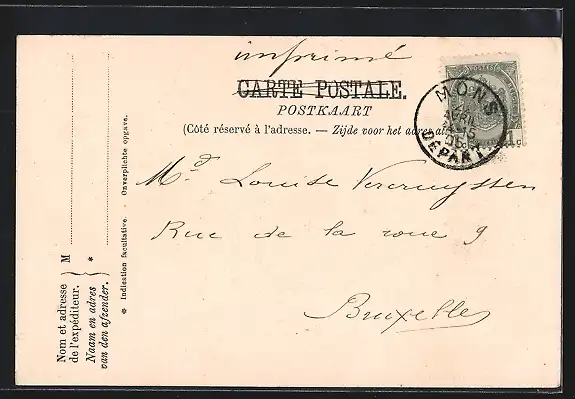 imprimé
CARTE POSTALE.
POSTKAART
(Côté réservé à l'adresse. — Zijde voor het adres
MONS
AVRIL
DEPART
1
Md Louise Vercruyssen
Rue de la roue 9
Bruxelles
* Indication facultative. - Onverplichte opgave.
M
*
Nom et adresse
de l'expéditeur.
Naam en adres
van den afzender.